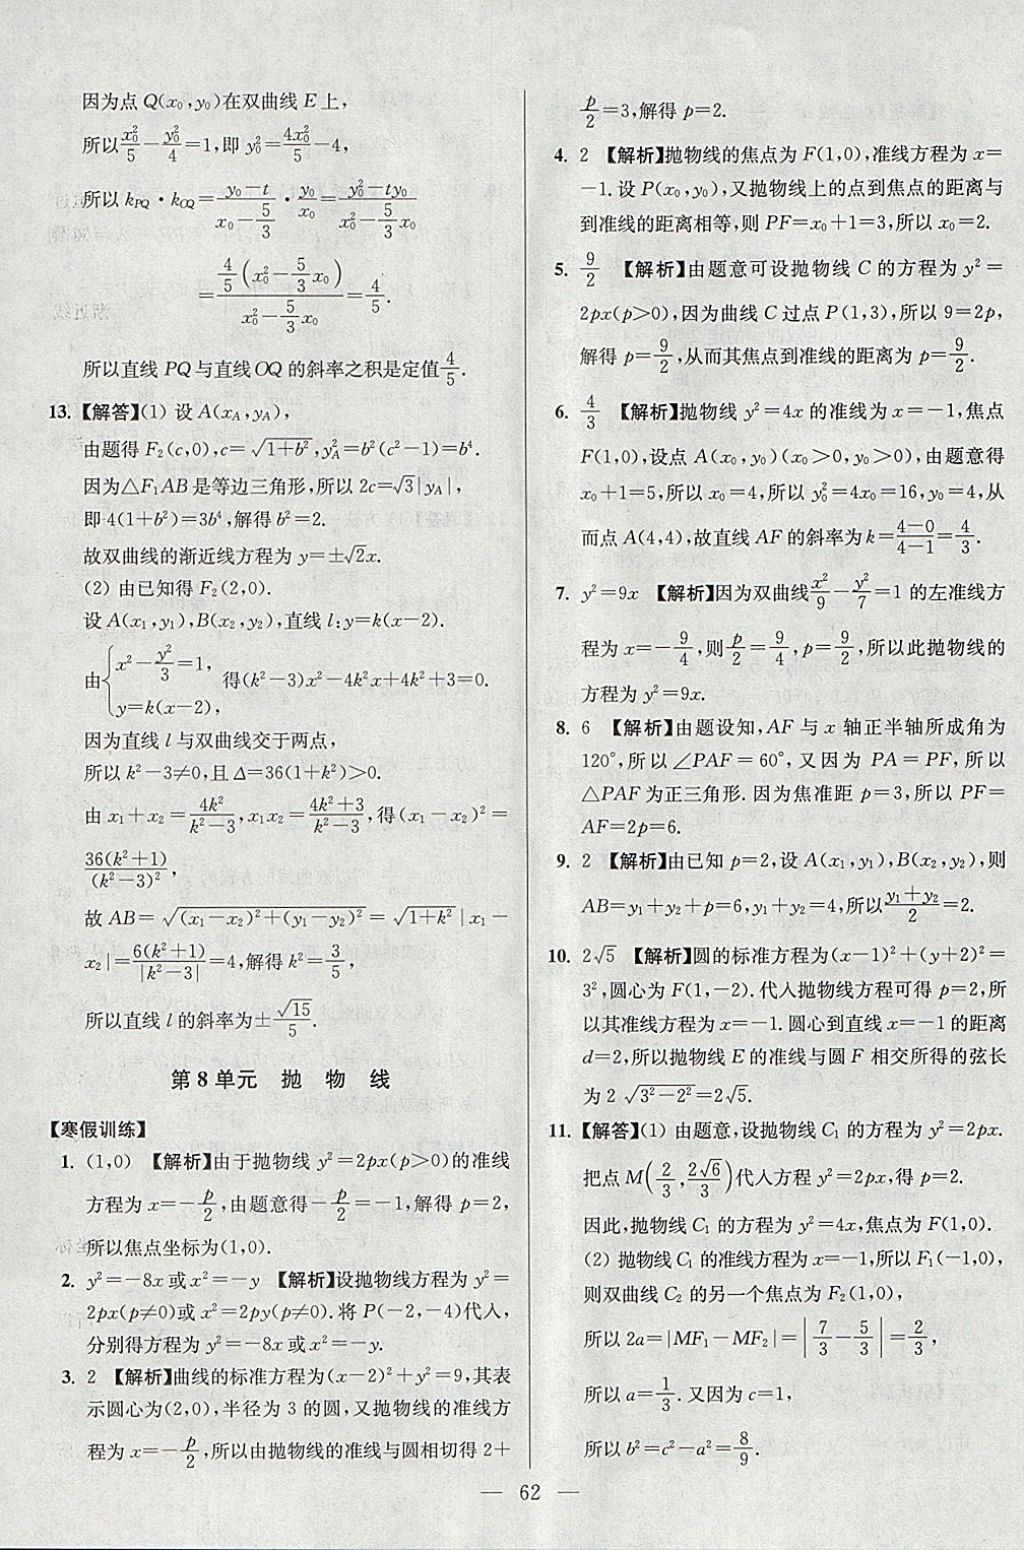 因为点 Q(x₀,y₀)在双曲线 E 上,
所以x₀²/5−y₀²/4=1,即 y₀²=4x₀²/5−4,
所以 k_PQ·k_OQ=(y₀−t)/(x₀−5/3)·y₀/x₀=(y₀²−ty₀)/(x₀²−(5/3)x₀)
=(4/5(x₀²−(5/3)x₀))/(x₀²−(5/3)x₀)=4/5.
所以直线 PQ 与直线 OQ 的斜率之积是定值4/5.
13.【解答】(1) 设 A(x_A,y_A),
由题得 F₂(c,0),c=√(1+b²),y_A²=b²(c²−1)=b⁴.
因为△F₁AB 是等边三角形,所以 2c=√3|y_A|,
即 4(1+b²)=3b⁴,解得 b²=2.
故双曲线的渐近线方程为 y=±√2x.
(2) 由已知得 F₂(2,0).
设 A(x₁,y₁),B(x₂,y₂),直线 l:y=k(x−2).
由{x²−y²/3=1, y=k(x−2), 得(k²−3)x²−4k²x+4k²+3=0.
因为直线 l 与双曲线交于两点,
所以 k²−3≠0,且 Δ=36(1+k²)>0.
由 x₁+x₂=4k²/(k²−3),x₁x₂=(4k²+3)/(k²−3),得(x₁−x₂)²=
36(k²+1)/(k²−3)²,
故 AB=√((x₁−x₂)²+(y₁−y₂)²)=√(1+k²)|x₁−
x₂|=6(k²+1)/|k²−3|=4,解得 k²=3/5,
所以直线 l 的斜率为±√15/5.
第 8 单元 抛 物 线
【寒假训练】
1. (1,0) 【解析】由于抛物线 y²=2px(p>0)的准线
方程为 x=−p/2,由题意得−p/2=−1,解得 p=2,
所以焦点坐标为(1,0).
2. y²=−8x 或 x²=−y 【解析】设抛物线方程为 y²=
2px(p≠0)或 x²=2py(p≠0).将 P(−2,−4)代人,
分别得方程为 y²=−8x 或 x²=−y.
3. 2 【解析】曲线的标准方程为(x−2)²+y²=9,其表
示圆心为(2,0),半径为 3 的圆,又抛物线的准线方
程为 x=−p/2,所以由抛物线的准线与圆相切得 2+
p/2=3,解得 p=2.
4. 2 【解析】抛物线的焦点为 F(1,0),准线方程为 x=
−1.设 P(x₀,y₀),又抛物线上的点到焦点的距离与
到准线的距离相等,则 PF=x₀+1=3,所以 x₀=2.
5. 9/2 【解析】由题意可设抛物线 C 的方程为 y²=
2px(p>0),因为曲线 C 过点 P(1,3),所以 9=2p,
解得 p=9/2,从而其焦点到准线的距离为 p=9/2.
6. 4/3 【解析】抛物线 y²=4x 的准线为 x=−1,焦点
F(1,0),设点 A(x₀,y₀)(x₀>0,y₀>0),由题意得
x₀+1=5,所以 x₀=4,所以 y₀²=4x₀=16,y₀=4,从
而点 A(4,4),故直线 AF 的斜率为 k=(4−0)/(4−1)=4/3.
7. y²=9x 【解析】因为双曲线x²/9−y²/7=1 的左准线方
程为 x=−9/4,则p/2=9/4,p=9/2,所以此抛物线的
方程为 y²=9x.
8. 6 【解析】由题设知,AF 与 x 轴正半轴所成角为
120°,所以∠PAF=60°,又因为 PA=PF,所以
△PAF 为正三角形.因为焦准距 p=3,所以 PF=
AF=2p=6.
9. 2 【解析】由已知 p=2,设 A(x₁,y₁),B(x₂,y₂),则
AB=y₁+y₂+p=6,y₁+y₂=4,所以(y₁+y₂)/2=2.
10. 2√5 【解析】圆的标准方程为(x−1)²+(y+2)²=
3²,圆心为 F(1,−2).代人抛物线方程可得 p=2,所
以其准线方程为 x=−1.圆心到直线 x=−1 的距离
d=2,所以抛物线 E 的准线与圆 F 相交所得的弦长
为 2√(3²−2²)=2√5.
11.【解答】(1) 由题意,设抛物线 C₁ 的方程为 y²=2px.
把点 M(2/3,2√6/3)代人方程 y²=2px,得 p=2.
因此,抛物线 C₁ 的方程为 y²=4x,焦点为 F(1,0).
(2) 抛物线 C₁ 的准线方程为 x=−1,所以 F₁(−1,0),
则双曲线 C₂ 的另一个焦点为 F₂(1,0),
所以 2a=|MF₁−MF₂|=|7/3−5/3|=2/3,
所以 a=1/3.又因为 c=1,
所以 b²=c²−a²=8/9.
— 62 —